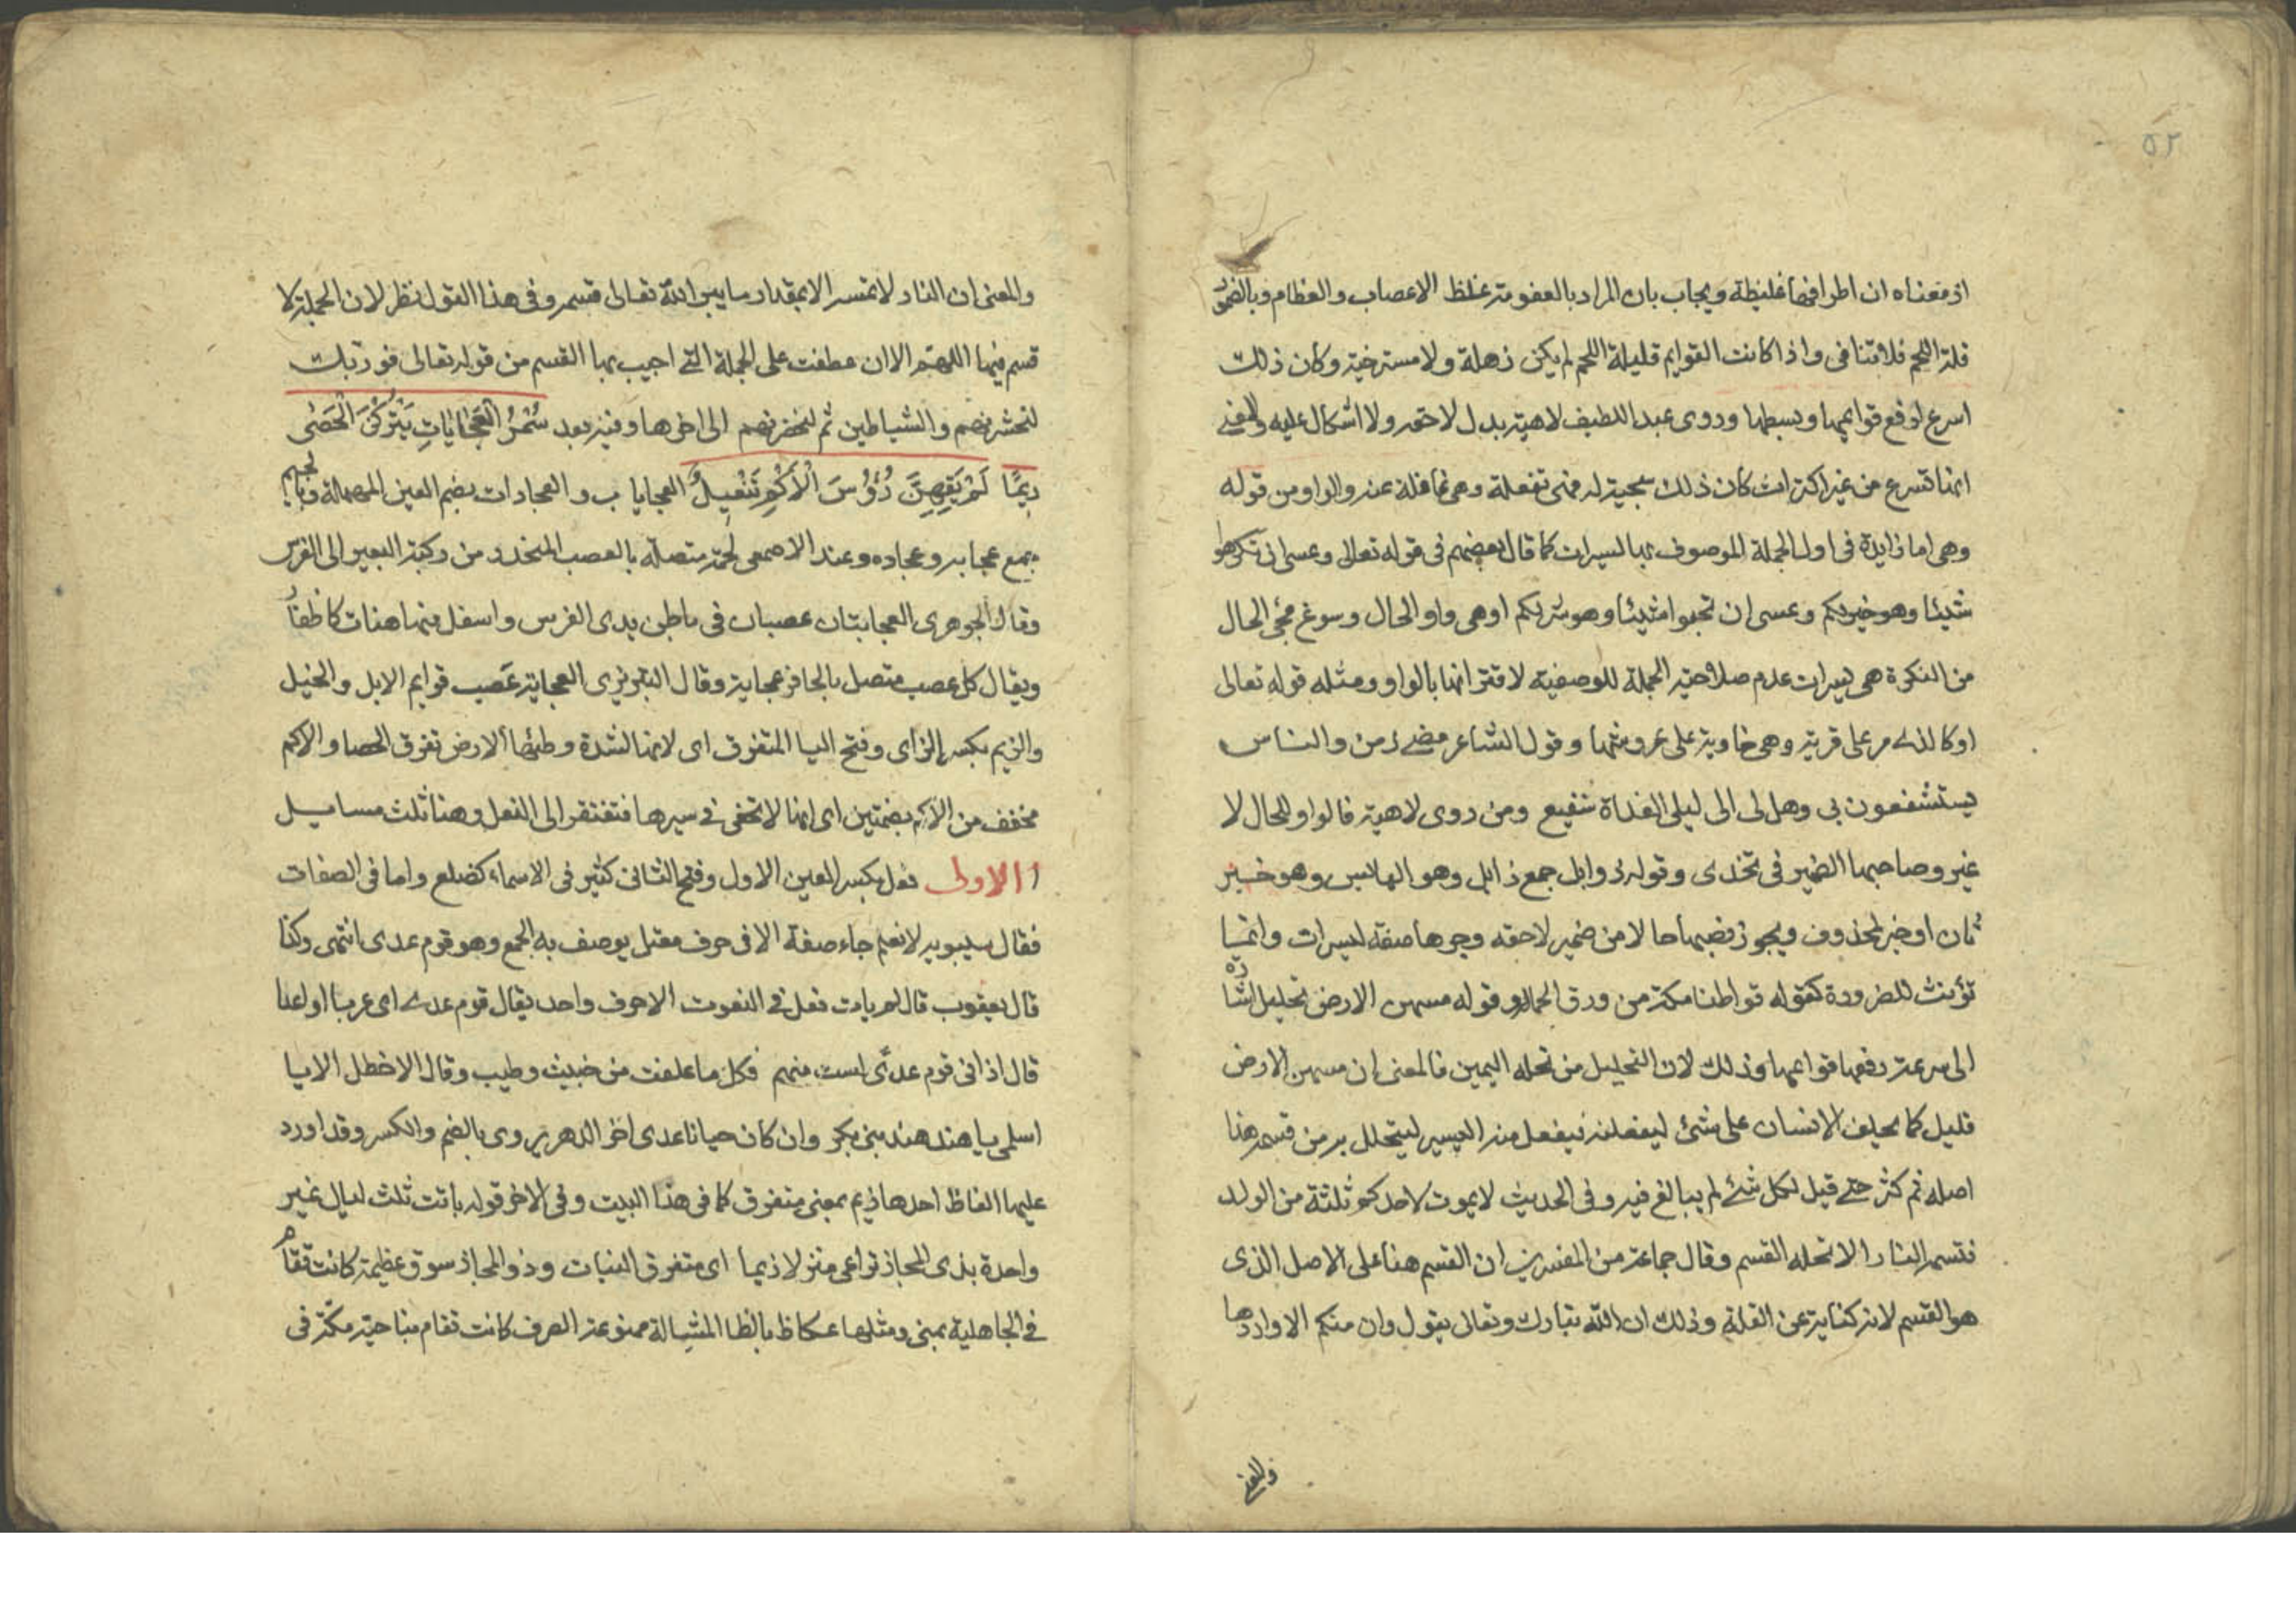 ٥٢
اذ معناه ان اطرافها غليظة ويجاب بان المراد بالعفومة غلظ الاعصاب والعظام وبالضمور
قلة اللحم فلا تنافى واذا كانت القوايم قليلة اللحم لم يكن زهلة ولا مسترخية وكان ذلك
اسرع لرفع قوايمها وبسطها وروى عبد اللطيف لاهية بدل لاحقه ولا اشكال عليه والمعنى
انها تسرع من غير اكتراث كان ذلك سجية له فهى تفعلة وهى غافلة عنه والواو من قوله
وهى اما زايدة فى اول الجملة الموصوف بها ليسرات كما قال بعضهم فى قوله تعالى وعسى ان تكرهوا
شيئا وهو خير لكم وعسى ان تحبوا شيئا وهو شر لكم او هى واو الحال وسوغ مجئ الحال
من النكرة هى ليسرات عدم صلاحية الجملة للوصفية لاقترانها بالواو ومثله قوله تعالى
او كالذى مر على قرية وهى خاوية على عروشها وقول الشاعر مضى زمن والناس
يستشفعون بى وهل لى الى ليلى الغداة شفيع ومن روى لاهية فالواو للحال لا
غير وصاحبها الضمير فى تخدى وقوله ذوابل جمع ذابل وهو اليابس وهو خبر
ثان او خبر لمحذوف ويجوز نصبها حالا من ضمير لاحقه وجرها صفة ليسرات وانما
تؤنث للضرورة كقوله قواطنا مكة من ورق الحمام وقوله مسهن الارض تحليل اشارة
الى سرعة رفعها قوايمها وذلك لان التحليل من تحله اليمين فالمعنى ان مسهن الارض
قليل كما يحلف الانسان على شئ ليفعلنه فيفعل منه اليسير ليتحلل به من قسمه هذا
اصله ثم كثر حتى قيل لكل شئ لم يبالغ فيه وفى الحديث لا يموت لاحدكم ثلثة من الولد
فتسمه النار الا تحله القسم وقال جماعة من المفسرين ان القسم هنا على الاصل الذى
هو القسم لانه كناية عن القلة وذلك ان الله تبارك وتعالى يقول وان منكم الا واردها
والمعنى
والمعنى ان النار لا تمسه الا بمقدار ما يبر الله تعالى قسمه وفى هذا القول نظر لان الجملة لا
قسم فيها اللهم الا ان عطفت على الجملة التى اجيب بها القسم من قوله تعالى فو ربك
لنحشرنهم والشياطين ثم لنحضرنهم الى اخرها وفيه بعد سُمْرُ الْعُجَايَاتِ يَتْرُكْنَ الْحَصَى
زِيَمًا لَمْ يَقِهِنَّ رُؤُوسَ الْأُكْمِ تَنْعِيلُ العجايات والعجاوات بضم العين المهملة وبالجيم
جمع عجايه وعجاوه وعند الاصمعى لحمة متصلة بالعصب المنحدر من ركبة البعير الى الفرسن
وقال الجوهرى العجايتان عصبان فى باطن يدى الفرس واسفل منهما هنات كالاظفار
ويقال كل عصب متصل بالحافر عجاية وقال التبريزى العجاية عَصب قوايم الابل والخيل
والزيم بكسر الزاى وفتح اليا المتفرق اى لانها لشدة وطئها الارض تفرق الحصا والاكم
مخفف من الاكم بضمتين اى انها لا تحفى فى سيرها فتفتقر الى النعل وهنا ثلث مسايل
الاولى فعل بكسر العين الاول وفتح الثانى كثير فى الاسماء كضلع واما فى الصفات
فقال سيبويه لا نعلم جاء صفة الا فى حرف معتل يوصف به الجمع وهو قوم عدى انتهى وكذا
قال يعقوب قال لم يات فعل فى النعوت الا حرف واحد يقال قوم عدى اى غربا او اعدا
قال اذا كنت فى قوم عدًى لست منهم فكل ما علفت من خبيث وطيب وقال الاخطل الا يا
اسلمى يا هند هند بنى بكر وان كان حيانا عدى اخر الدهر يروى بالضم والكسر وقد اورد
عليها الفاظ احدها زيم بمعنى متفرق كما فى هذا البيت وفى الاخر قوله باتت ثلث ليال غير
واحدة بذى المجاز تراعى منزلا زيما اى متفرق النبات وذو المجاز سوق عظيمة كانت تقام
فى الجاهلية بمنى ومثلها عكاظ بالظا المشالة ممنوعة الصرف كانت تقام بناحية مكة فى